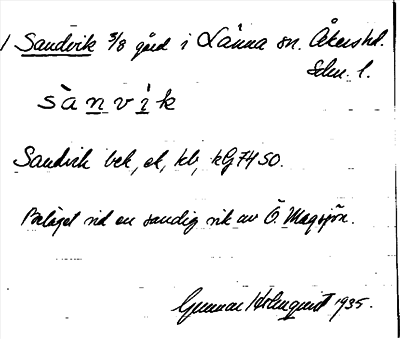 1 Sandvik 3/8 gård i Länna sn. Åkers hd.
Sdm. l.
sànvik
Sandvik bek, ek, kb, kG 74 SO.
Beläget vid en sandig vik av Ö. Magsjön.
Gunnar Holmquist 1935.